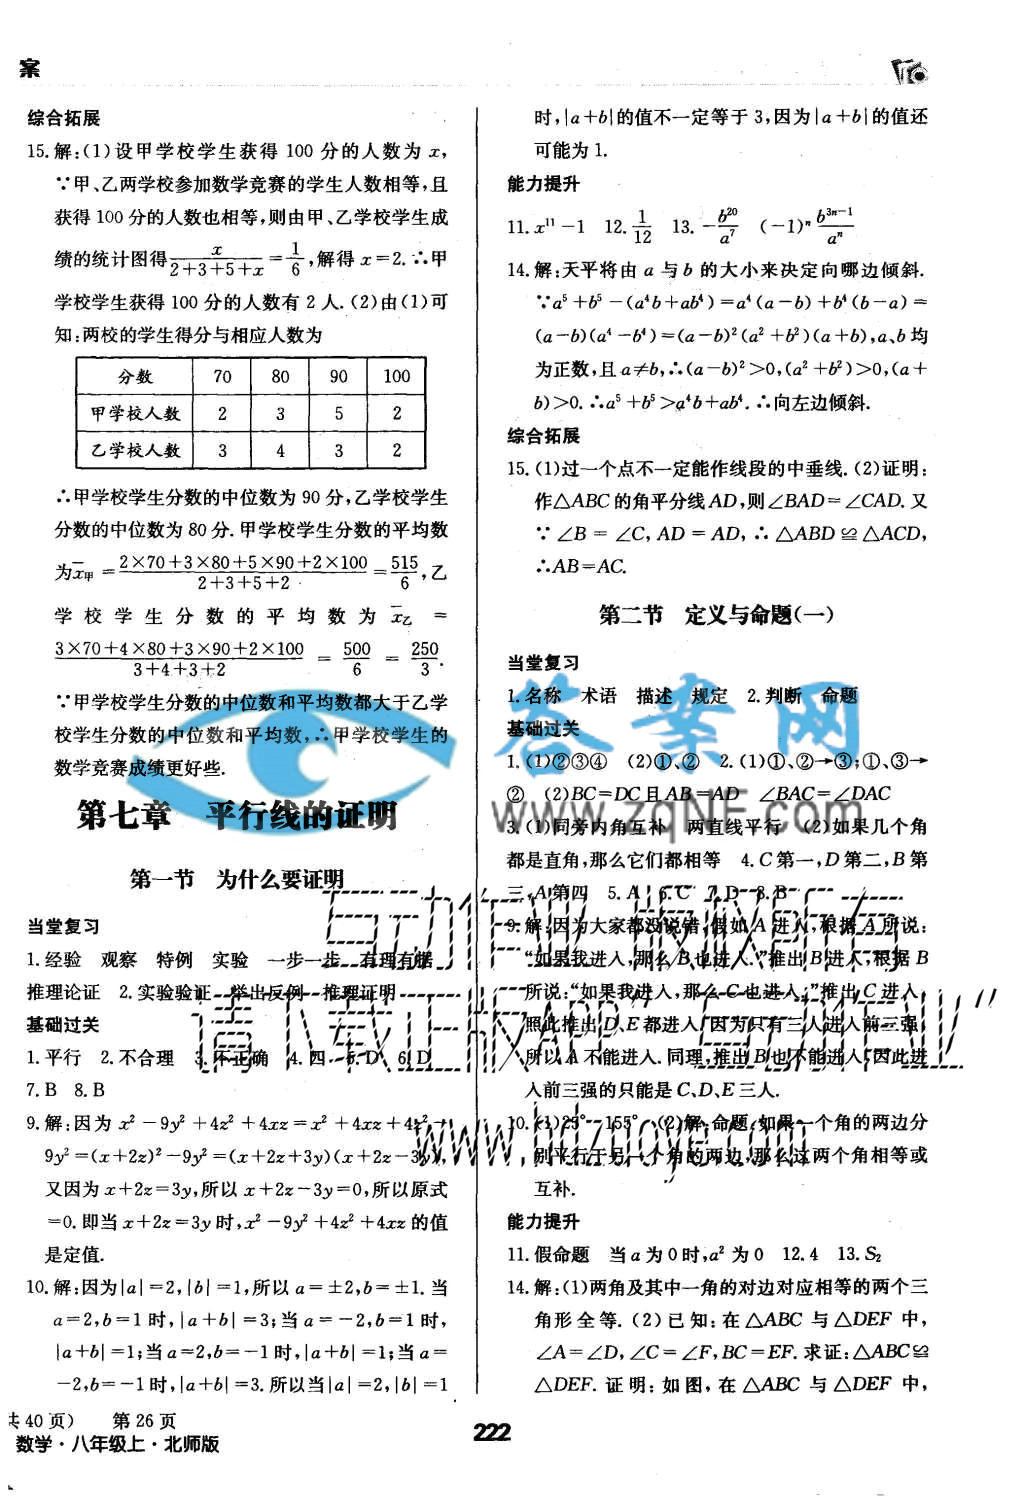 案
综合拓展
15.解:(1)设甲学校学生获得 100 分的人数为 x,
∵甲、乙两学校参加数学竞赛的学生人数相等,且
获得 100 分的人数也相等,则由甲、乙学校学生成
绩的统计图得 x/(2+3+5+x) = 1/6,解得 x=2.∴甲
学校学生获得 100 分的人数有 2 人.(2)由(1)可
知:两校的学生得分与相应人数为
分数 70 80 90 100
甲学校人数 2 3 5 2
乙学校人数 3 4 3 2
∴甲学校学生分数的中位数为 90 分,乙学校学生
分数的中位数为 80 分.甲学校学生分数的平均数
为x̄甲 = (2×70+3×80+5×90+2×100)/(2+3+5+2) = 515/6,乙
学校学生分数的平均数为 x̄乙 =
(3×70+4×80+3×90+2×100)/(3+4+3+2) = 500/6 = 250/3.
∵甲学校学生分数的中位数和平均数都大于乙学
校学生分数的中位数和平均数,∴甲学校学生的
数学竞赛成绩更好些.
第七章 平行线的证明
第一节 为什么要证明
当堂复习
1.经验 观察 特例 实验 一步一步 有理有据
推理论证 2.实验验证 举出反例 推理证明
基础过关
1.平行 2.不合理 3.不正确 4.四 5.D 6.D
7.B 8.B
9.解:因为 x²－9y²＋4z²＋4xz＝x²＋4xz＋4z²－
9y²＝(x+2z)²－9y²＝(x+2z+3y)(x+2z－3y),
又因为 x+2z=3y,所以 x+2z－3y=0,所以原式
=0.即当 x+2z=3y 时,x²－9y²+4z²+4xz 的值
是定值.
10.解:因为|a|=2,|b|=1,所以 a=±2,b=±1.当
a=2,b=1 时,|a+b|=3;当 a=－2,b=1 时,
|a+b|=1;当 a=2,b=－1 时,|a+b|=1;当 a=
－2,b=－1 时,|a+b|=3.所以当|a|=2,|b|=1
时,|a+b|的值不一定等于 3,因为|a+b|的值还
可能为 1.
能力提升
11.x¹¹－1 12.1/12 13.－b²⁰/a⁷ (－1)ⁿ b³ⁿ⁻¹/aⁿ
14.解:天平将由 a 与 b 的大小来决定向哪边倾斜.
∵a⁵+b⁵－(a⁴b+ab⁴)=a⁴(a－b)+b⁴(b－a)=
(a－b)(a⁴－b⁴)=(a－b)²(a²+b²)(a+b),a、b 均
为正数,且 a≠b,∴(a－b)²>0,(a²+b²)>0,(a+
b)>0.∴a⁵+b⁵>a⁴b+ab⁴.∴向左边倾斜.
综合拓展
15.(1)过一个点不一定能作线段的中垂线.(2)证明:
作△ABC 的角平分线 AD,则∠BAD=∠CAD.又
∵ ∠B = ∠C, AD = AD, ∴ △ABD ≌ △ACD,
∴AB=AC.
第二节 定义与命题(一)
当堂复习
1.名称 术语 描述 规定 2.判断 命题
基础过关
1.(1)①②③④ (2)①、② 2.(1)①、②→③;①、③→
② (2)BC=DC 且 AB=AD ∠BAC=∠DAC
3.(1)同旁内角互补 两直线平行 (2)如果几个角
都是直角,那么它们都相等 4.C 第一,D 第二,B 第
三,A 第四 5.A 6.C 7.D 8.B
9.解:因为大家都没说错,假如 A 进入,根据 A 所说:
“如果我进入,那么 B 也进入.”推出 B 进入,根据 B
所说:“如果我进入,那么 C 也进入.”推出 C 进入,
照此推出 D、E 都进入,因为只有三人进入前三强,
所以 A 不能进入.同理,推出 B 也不能进入,因此进
入前三强的只能是 C、D、E 三人.
10.(1)25° 155° (2)解:命题:如果一个角的两边分
别平行于另一个角的两边,那么这两个角相等或
互补.
能力提升
11.假命题 当 a 为 0 时,a² 为 0 12.4 13.S₂
14.解:(1)两角及其中一角的对边对应相等的两个三
角形全等.(2)已知:在△ABC 与△DEF 中,
∠A=∠D,∠C=∠F,BC=EF.求证:△ABC≌
△DEF.证明:如图,在△ABC 与△DEF 中,
答案网
www.zqNF.com
互动作业 版权所有
请下载正版APP“互动作业”
www.hdzuoye.com
共 40 页) 第 26 页
数学·八年级上·北师版
222